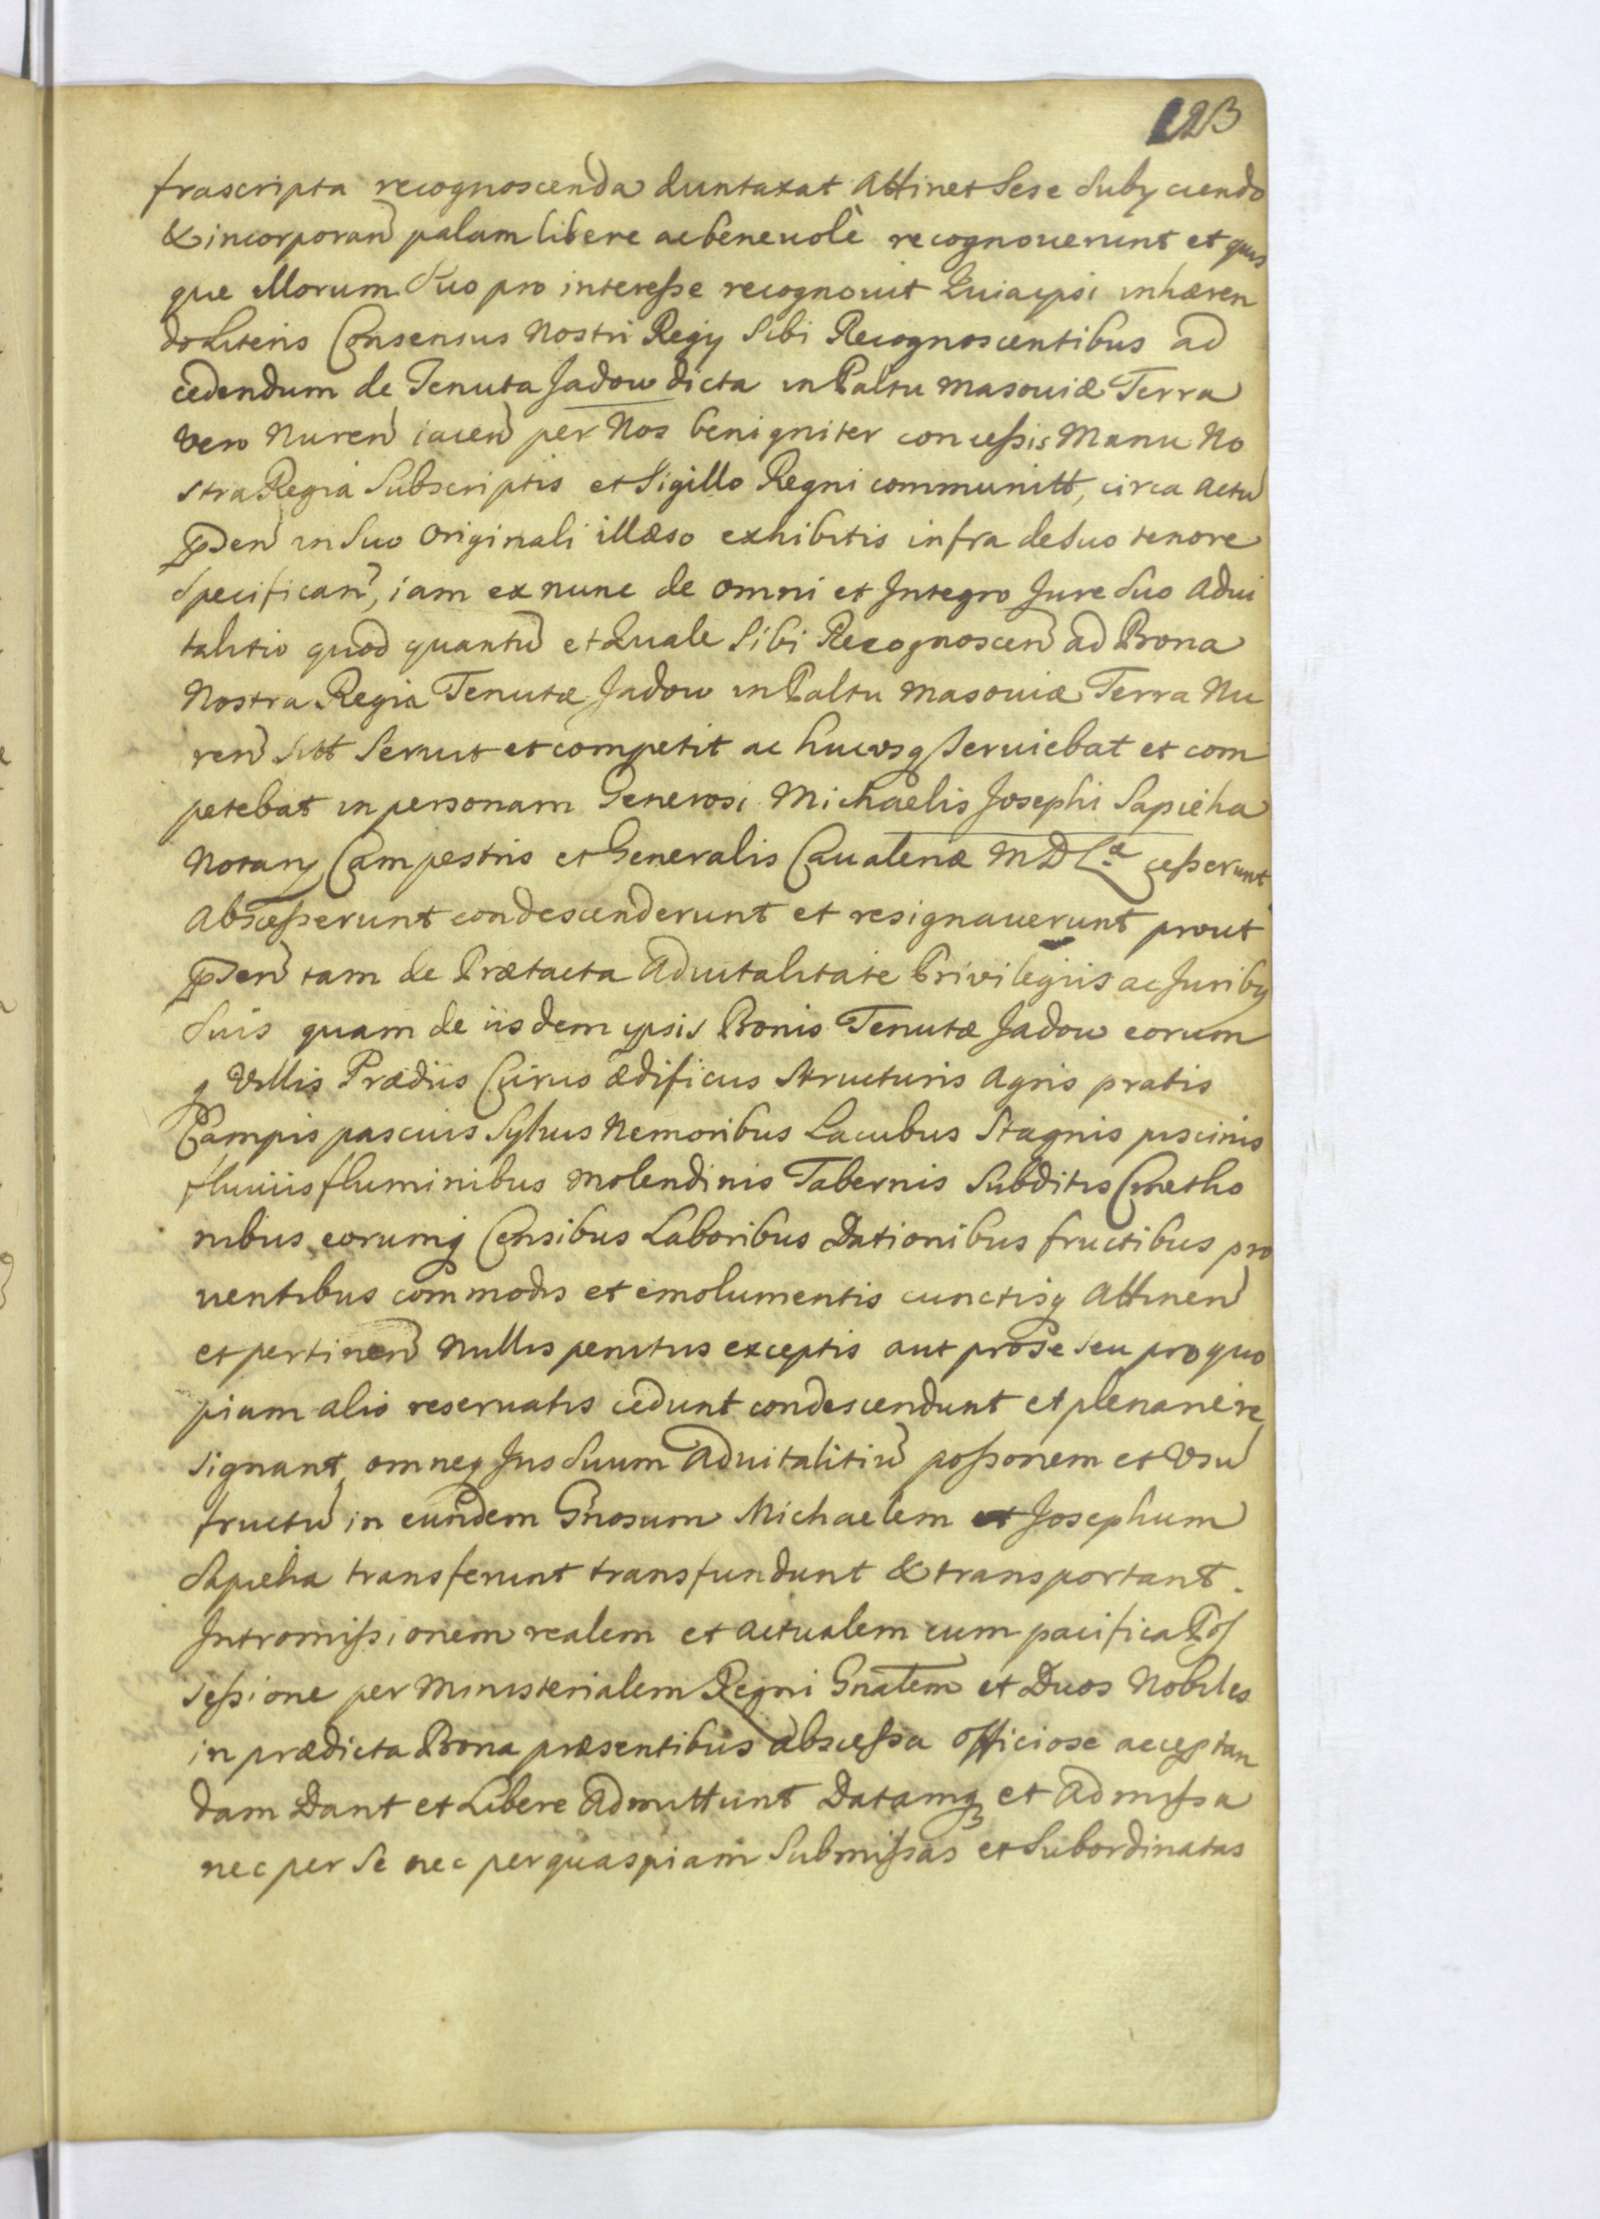 123
frascripta recognoscenda duntaxat Attinet Sese Subÿciendo
& incorporan palam libere ac beneuolè recognouerunt et quis
que Illorum Suo pro interesse recognouit Quia ipsi inhæren
do Literis Consensus Nostri Regÿ Sibi Recognoscentibus ad
cedendum de Tenuta Jadow dicta in Paltu Masouiæ Terra
vero Nuren iacen per Nos benigniter concessis Manu No
stra Regia Subscriptis et Sigillo Regni communitt, circa Actu
pnden in Suo Originali illæso exhibitis infra de Suo tenore
Specifican, iam ex nunc de omni et Integro Jure Suo Adui
talitio quod quantu et Quale Sibi Recognoscen ad Bona
Nostra Regia Tenutæ Jadow in Paltu Masouiæ Terra Nu
ren sitt Seruit et competit ac hucusq seruiebat et com
petebat in personam Generosi Michaelis Josephi Sapieha
Notarÿ Campestris et Generalis Caualeriæ M D L^æ cesserunt
Abscesserunt condescenderunt et resignauerunt prout
pnden tam de Prætacta Aduitalitate Privilegiis ac Juribq
Suis quam de iisdem ipsis Bonis Tenutæ Jadow eorum
q Villis Prædiis Curiis ædificiis Structuris Agris pratis
Campis pascuis Syluis Nemoribus Lacubus Stagnis piscinis
fluuiis fluminibus Molendinis Tabernis Subditis Cmetho
nibus eorumq Censibus Laboribus Dationibus fructibus pro
uentibus commodis et emolumentis cunctisq Attinen
et pertinen Nullis penitus exceptis aut pro se seu pro quo
piam alio reseruatis cedunt condescendunt et plenarie re
signant, omneq Jus Suum Aduitalitiu possonem et Vsu
fructu in eundem Gnosum Michaelem et Josephum
Sapieha transferunt transfundunt & transportant.
Intromissionem realem et Actualem cum pacifica Pos
sessione per Ministerialem Regni Gnalem et Duos Nobiles
in prædicta Bona præsentibus abscessa officiose acceptan
dam Dant et Libere Admittunt Datamq et Admissa
nec per Se nec per quaspiam Submissas et Subordinatas